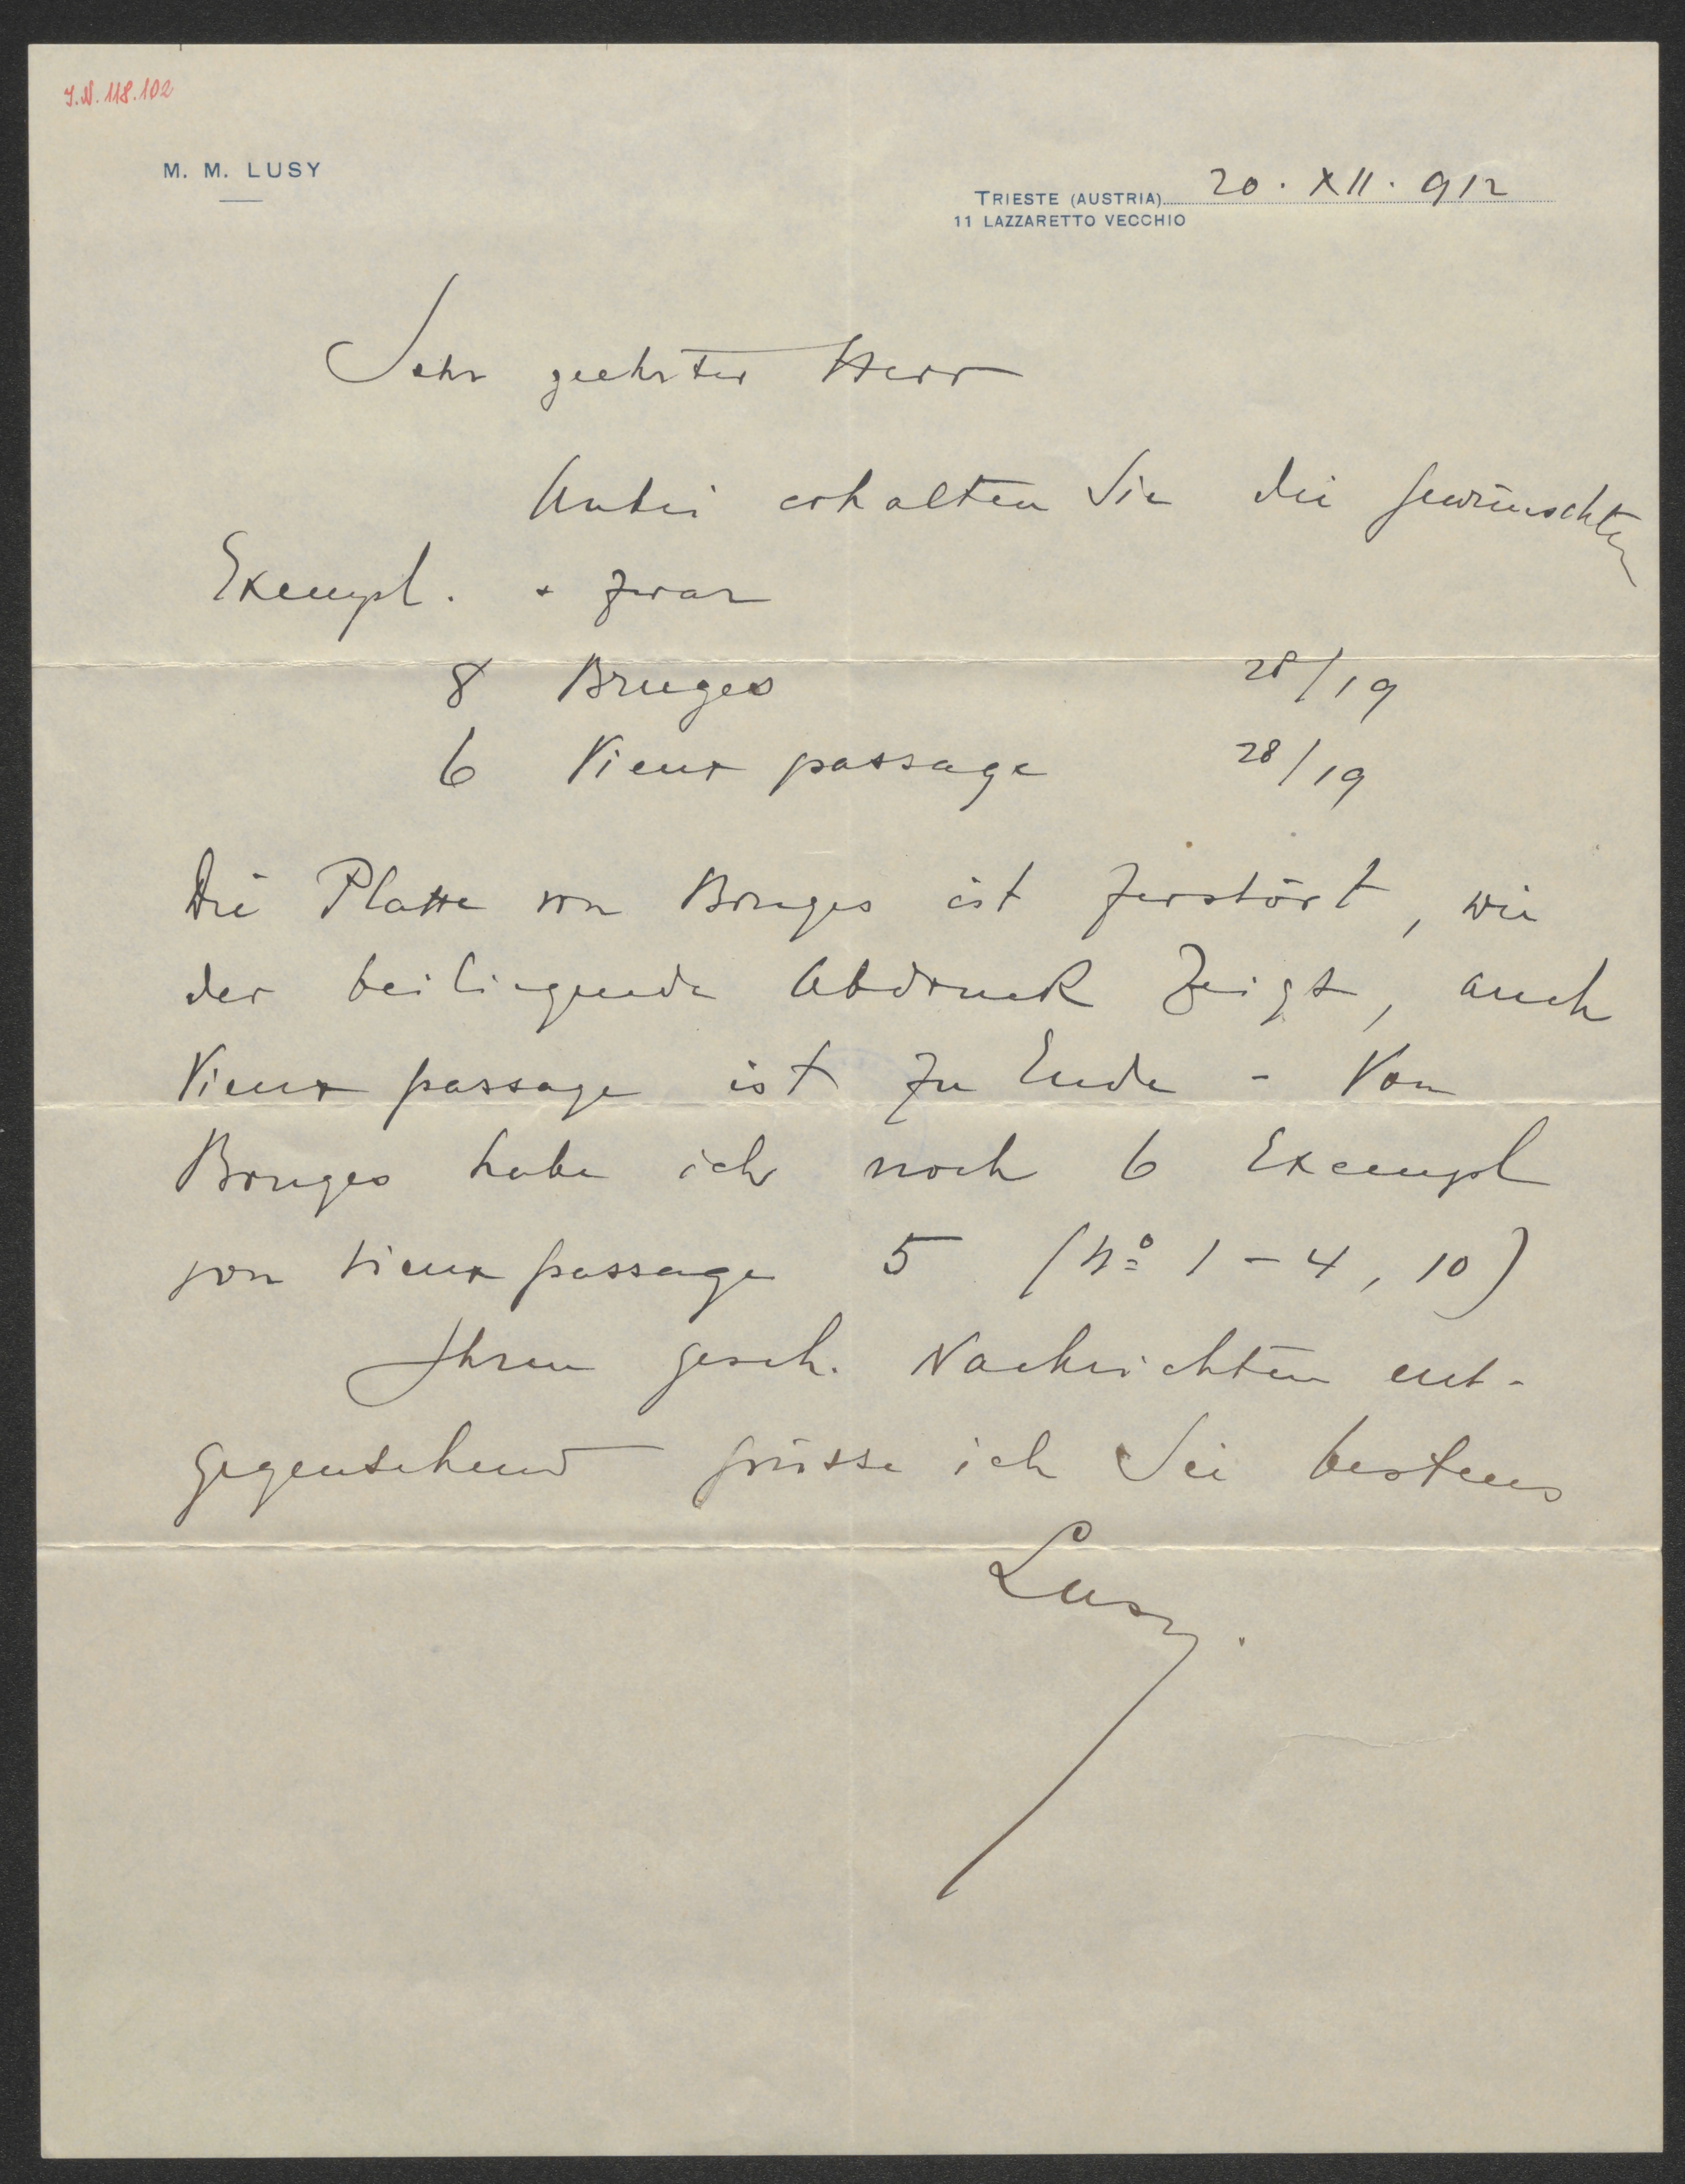 I.N. 118.102
M. M. LUSY
TRIESTE (AUSTRIA) 20. XII. 912
11 LAZZARETTO VECCHIO
Sehr geehrter Herr
Anbei erhalten Sie die gewünschten
Exempl. + zwar
8 Bruges 28/19
6 Vieux passage 28/19
Die Platte von Bruges ist zerstört, wie
der beiliegende Abdruck zeigt, auch
Vieux passage ist zu Ende - Von
Bruges habe ich noch 6 Exempl
von Vieux passage 5 (Nº 1 - 4, 10)
Ihren gesch. Nachrichten ent-
gegensehend grüsse ich Sie bestens
Lusy.